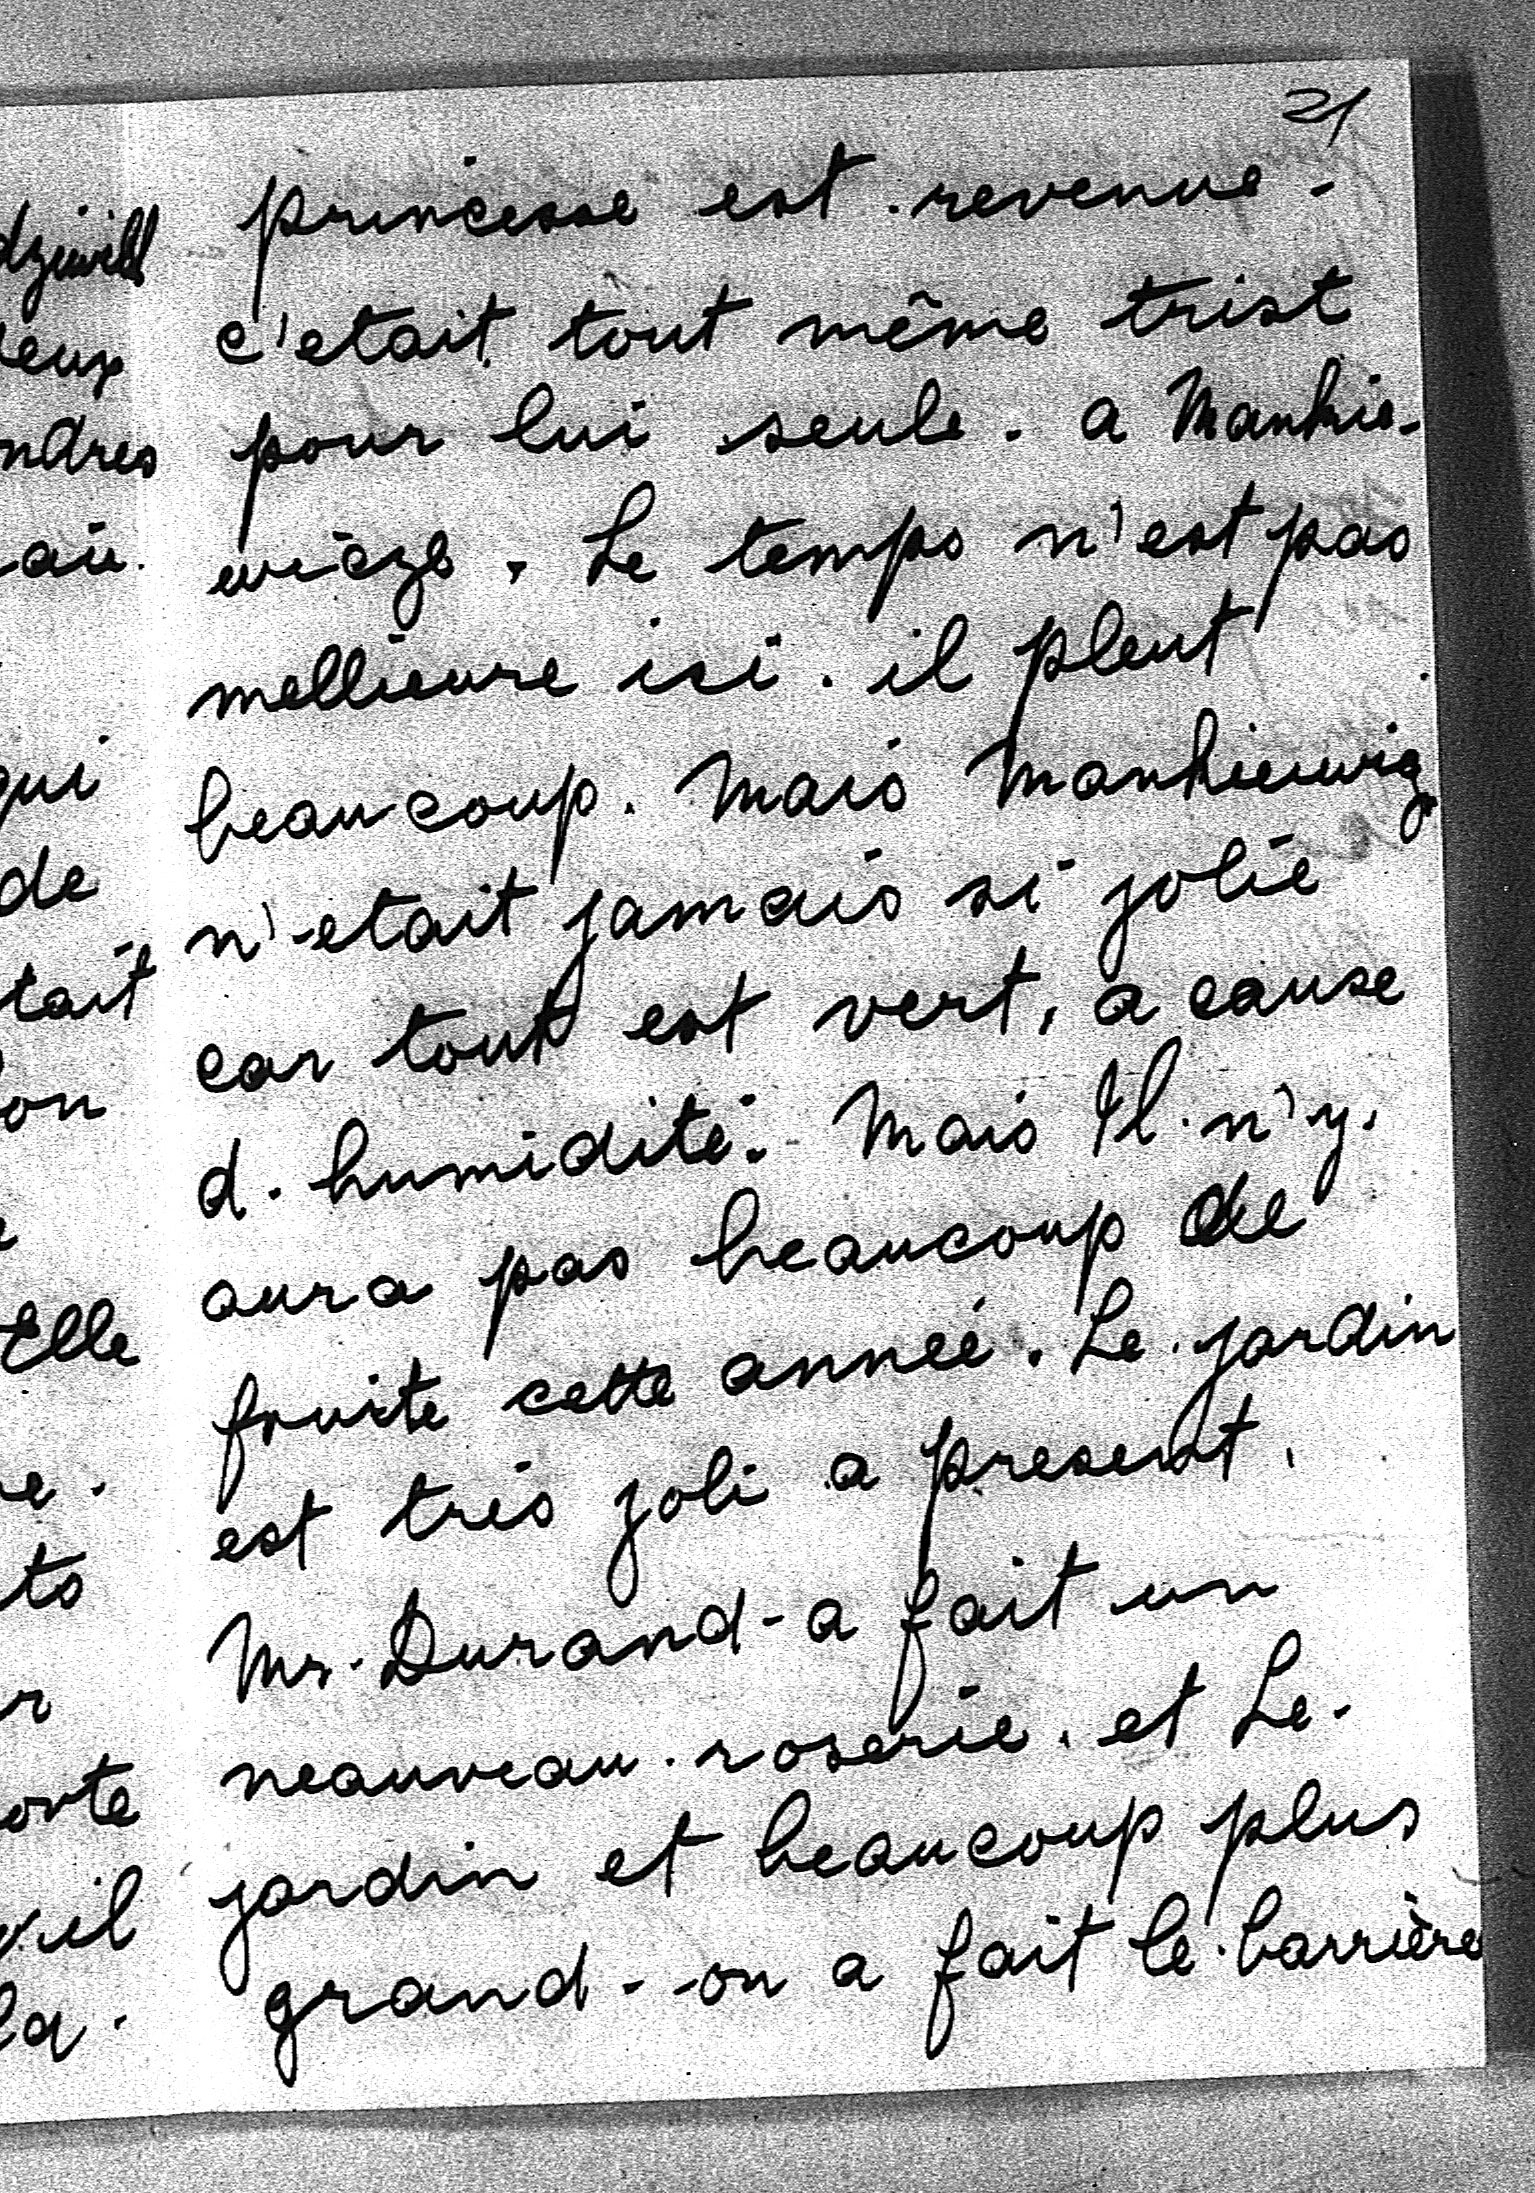 21
princesse est revenue -
c'etait tout même trist
pour lui seule. a Mankie-
wicze. Le temps n'est pas
mellieure isi. il pleut
beaucoup. Mais Mankiewicz
n'etait jamais si jolie
car tout est vert, a cause
d. humidité. - Mais Il n'y.
aura pas beaucoup de
fruite cette année. Le jardin
est très joli a present.
Mr. Durand - a fait un
neauveau. roserie. et Le -
jardin et beaucoup plus
grand - - on a fait le barrière
dziwill
deux
ndres
au.
qui
de
tait
on
Elle
e.
ts
r
orte
il
la.